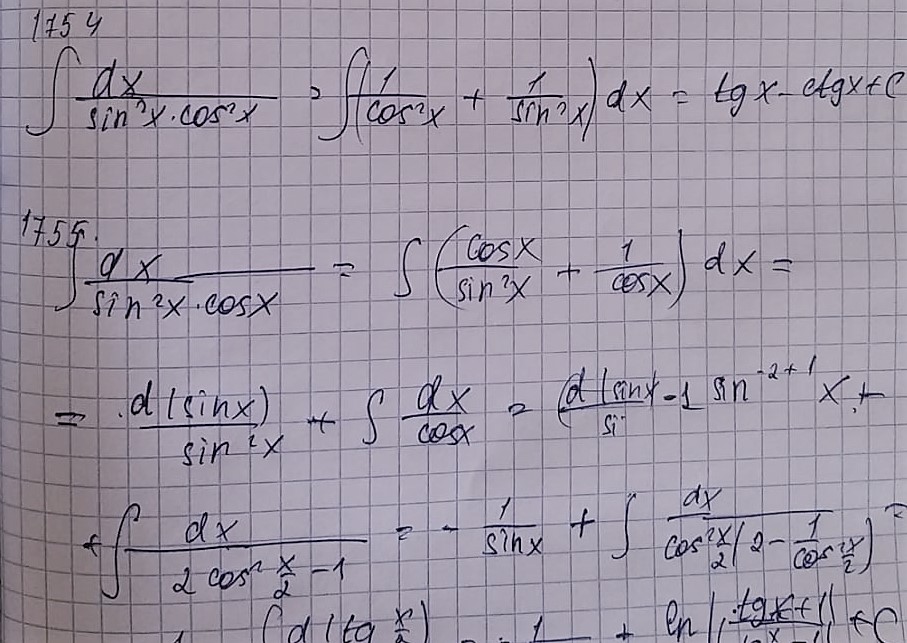 1754
∫ dx / (sin²x · cos²x) = ∫ (1/cos²x + 1/sin²x) dx = tg x - ctg x + C
1755.
∫ dx / (sin²x · cosx) = ∫ (cosx / sin²x + 1/cosx) dx =
= d(sinx) / sin²x + ∫ dx / cosx = -1 sin⁻²⁺¹ x +
+ ∫ dx / (2 cos² x/2 - 1) = - 1/sinx + ∫ dx / (cos² x/2 (2 - 1/cos² x/2)) =
d(tg x/2) = 1 + ln | tg x + 1 | + C